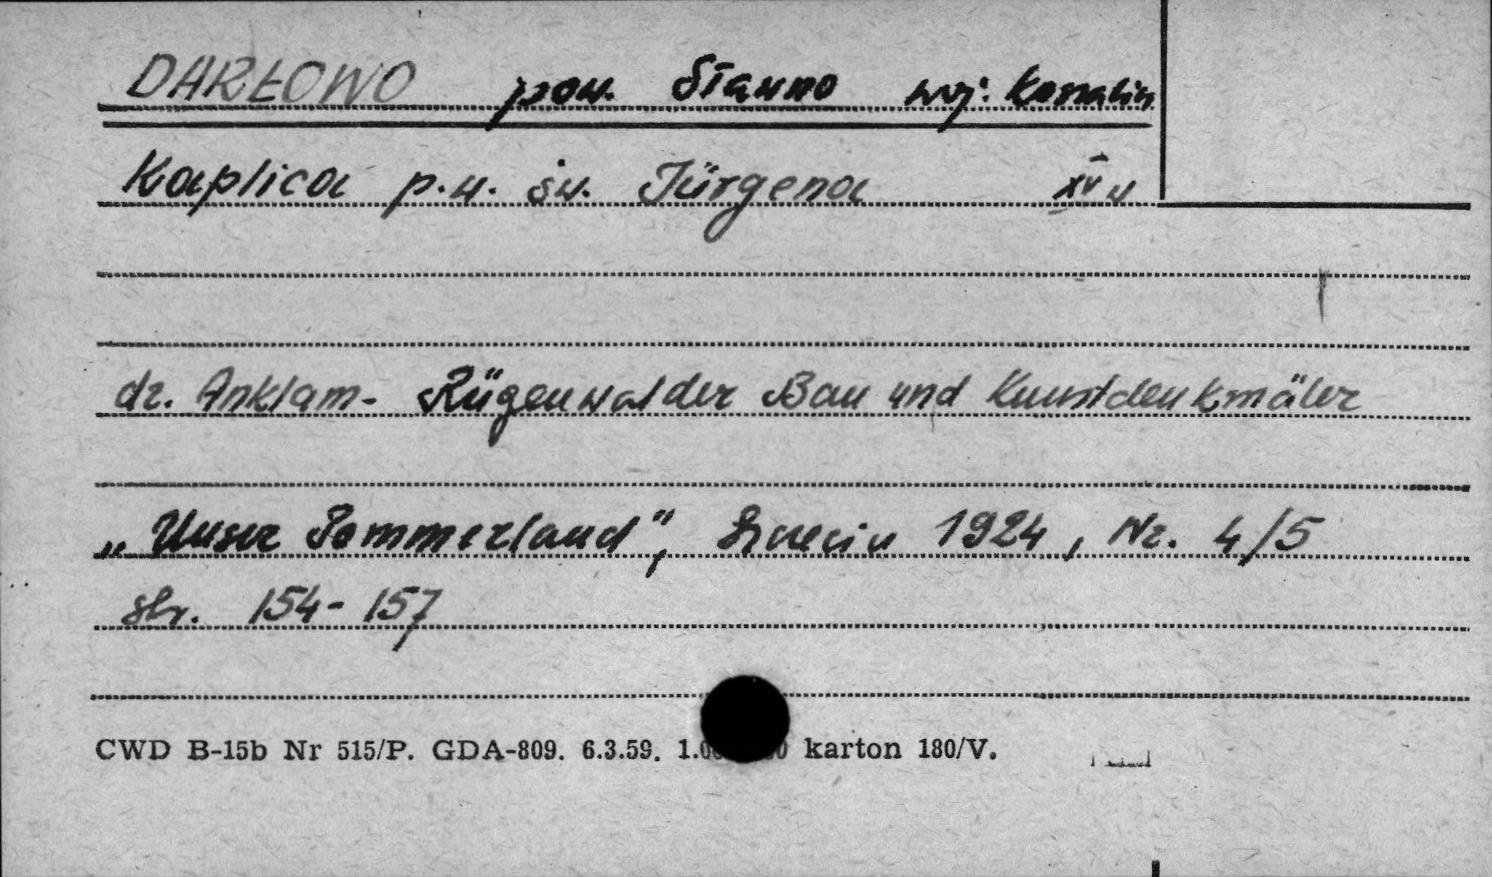 DARŁOWO pow. Sławno woj. Koszalin
Kaplica p.w. św. Jürgena XV w
dr. Anklam - Rügenwalder Bau und Kunstdenkmäler
„Unser Pommerland", Szczecin 1924, Nr. 4/5
str. 154-157
CWD B-15b Nr 515/P. GDA-809. 6.3.59. karton 180/V.